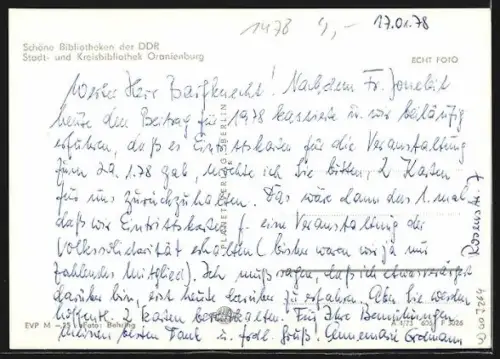 1478 4,- 17.01.78
Schöne Bibliotheken der DDR
Stadt- und Kreisbibliothek Oranienburg
ECHT FOTO
Werter Herr Bargknecht! Nachdem Fr.
heute den Beitrag für 1978 kassierte u. wir beläufig
erfuhren, daß es Eintrittskarten für die Veranstaltung
zum 29.1.78 gab, möchte ich Sie bitten, 2 Karten
für uns zurückzuhalten. Das wäre dann das 1. mal
daß wir Eintrittskarten f. eine Veranstaltung der
Volkssolidarität erhalten (bisher waren wir ja nur
zahlendes Mitglied). Ich muß sagen, daß ich etwas verärgert
darüber bin, erst heute darüber zu erfahren. Aber Sie werden
hoffentl. 2 Karten behalten. Für Ihre Bemühungen
meinen besten Dank u. frdl. Gruß! Annemarie
Rosenstr. 7
PLANET-VERLAG BERLIN
EVP M -,25 Foto: Behring